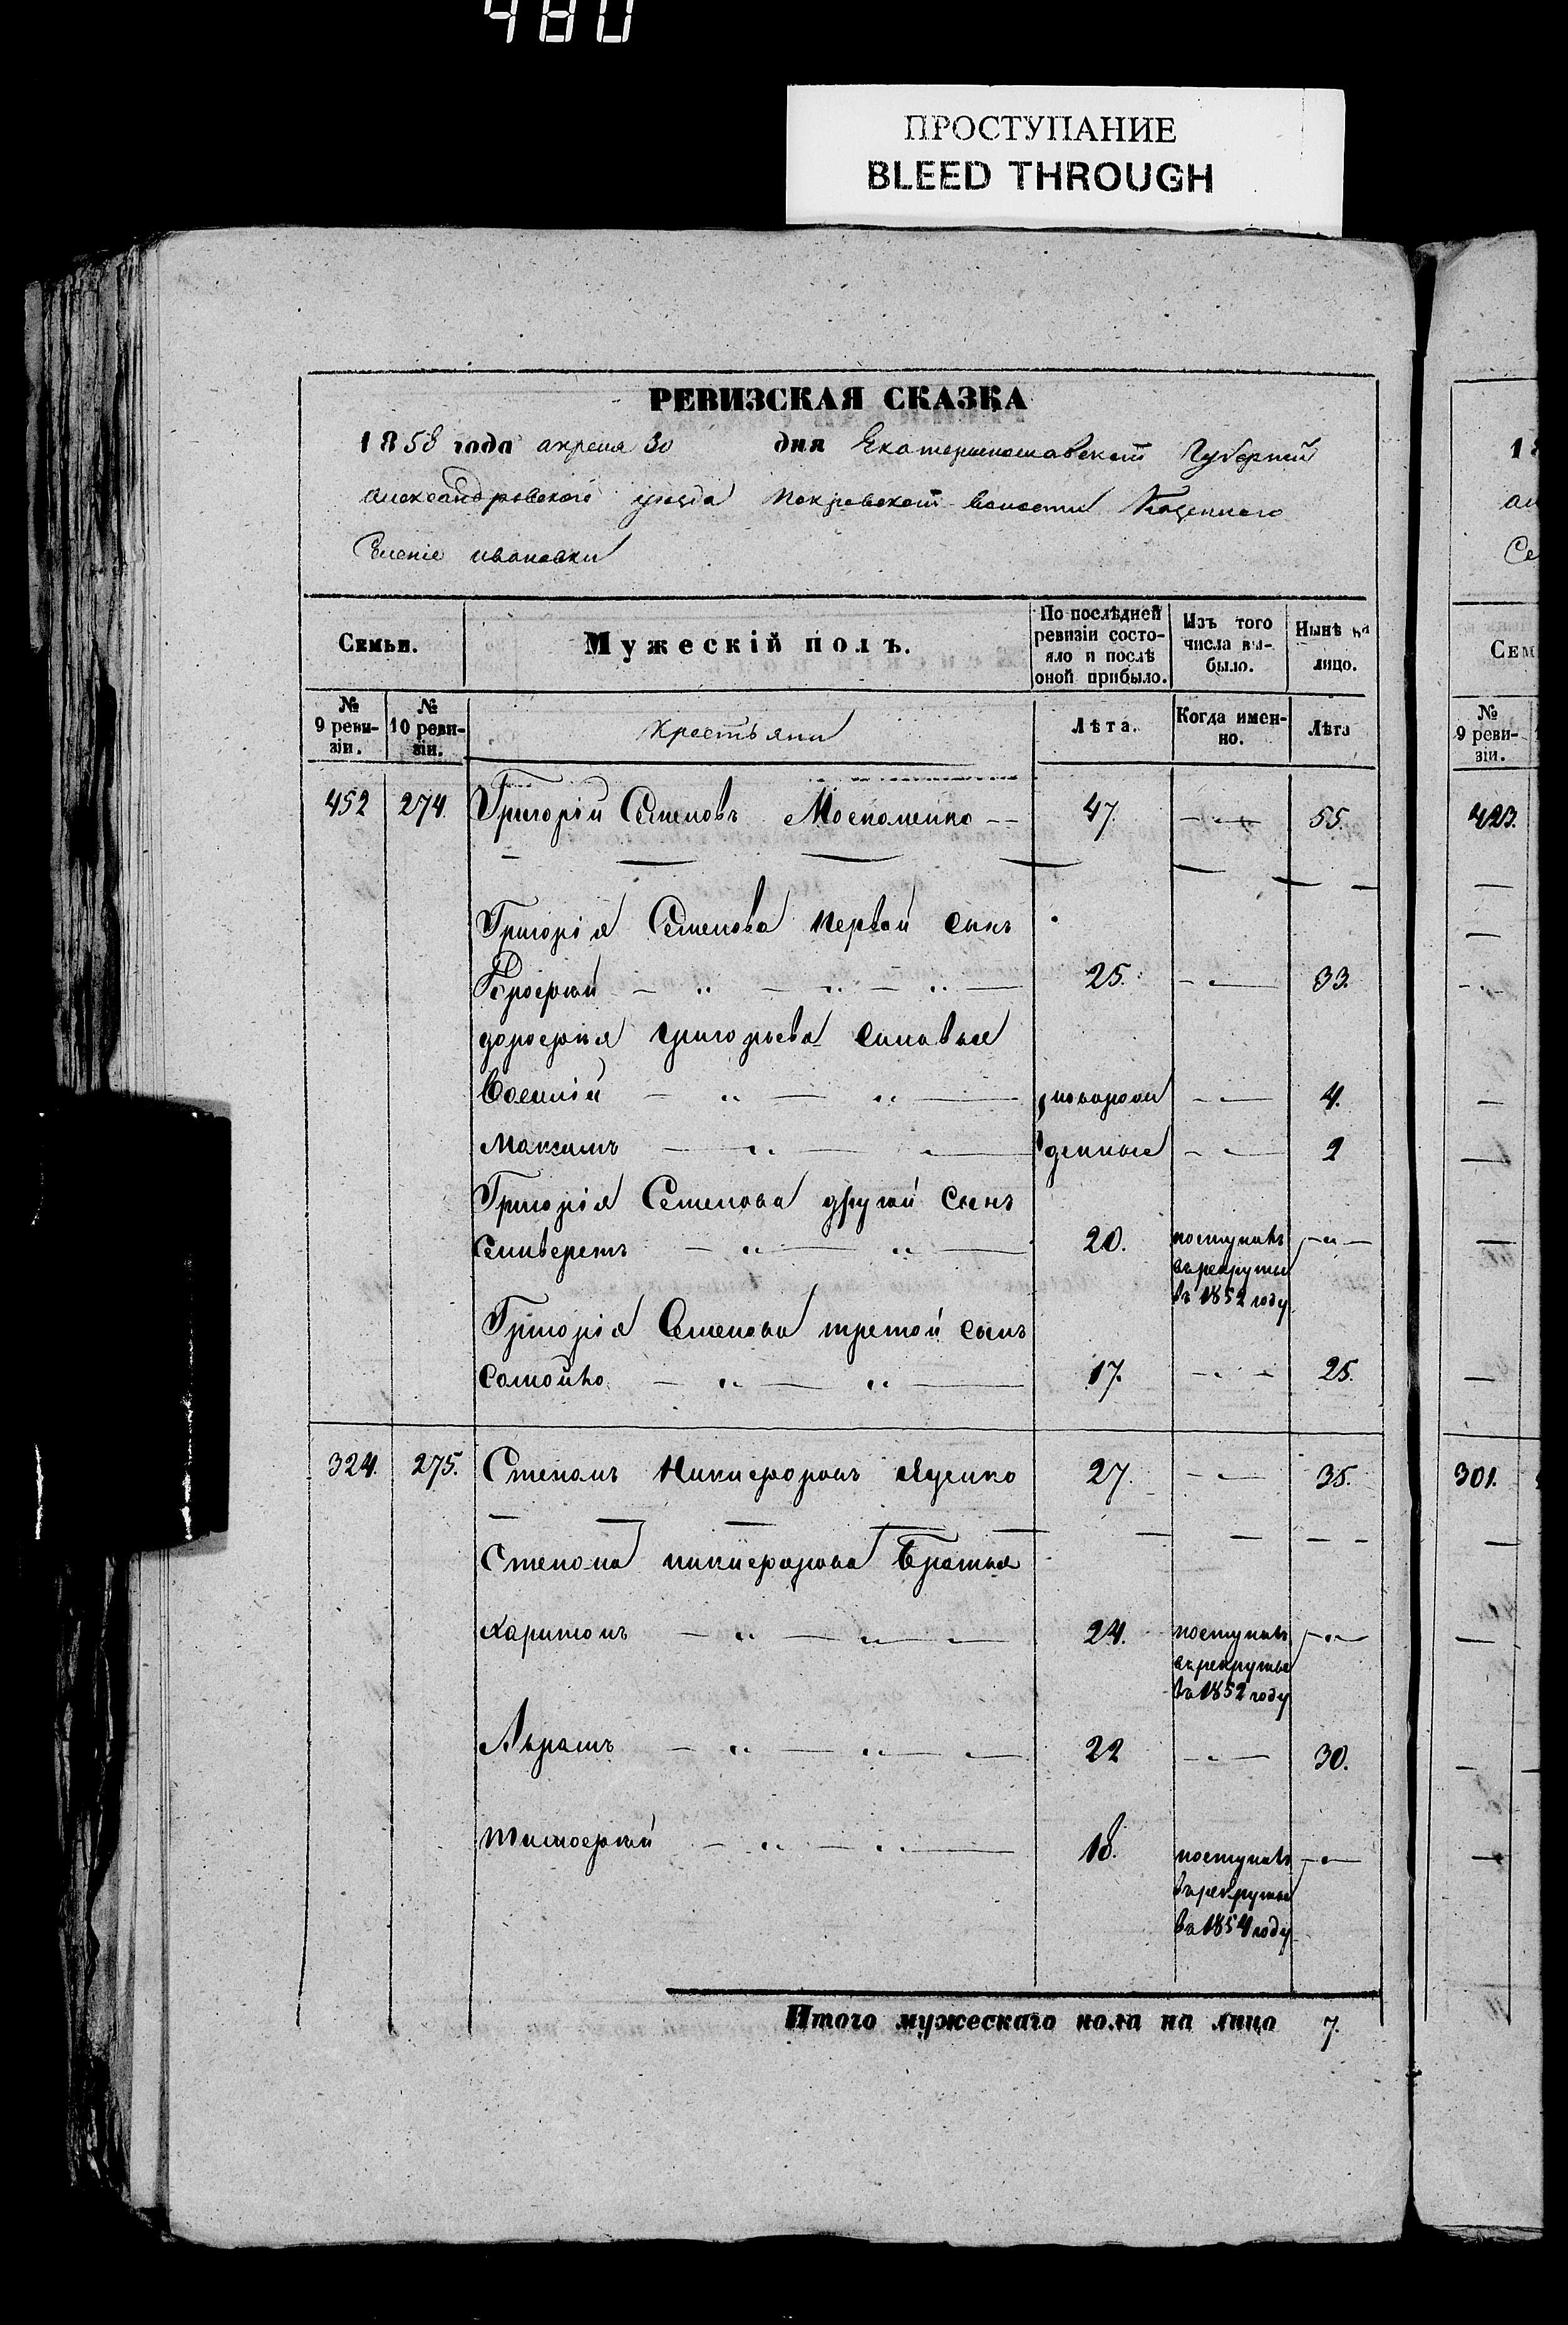 480
ПРОСТУПАНИЕ
BLEED THROUGH
РЕВИЗСКАЯ СКАЗКА
1858 года апреля 30 дня Екатеринославской Губерніи
Александровского уезда Покровской волости Казенного
Селенія Ивановки
Семьи. Мужескій полъ. По послѣдней ревизіи состояло и послѣ оной прибыло. Изъ того числа выбыло. Нынѣ на лицо.
№ 9 ревизіи. № 10 ревизіи. Крестьяни Лѣта. Когда именно. Лѣта
452 274. Григорій Семеновъ 47. 55.
Григорія Семенова первой сынъ
Дорофей 25. 33.
дорофея григорьева сыновья
Василій новорож 4.
Максимъ денные 2
Григорія Семенова другой сынъ
Селиверстъ 20. поступилъ
в рекруты
въ 1852 году
Григорія Семенова третой сынъ
Самойло 17. 25.
324. 275. Степанъ Никифоровъ Яценко 27. 35.
Степана никифорова братья
Харитонъ 24. поступилъ
в рекруты
въ 1852 году
Абрамъ 22 30.
Тимофей 18. поступилъ
в рекруты
въ 1854 году
Итого мужескаго пола на лицо 7.
Сем
№ 9 ревизіи.
423.
301.